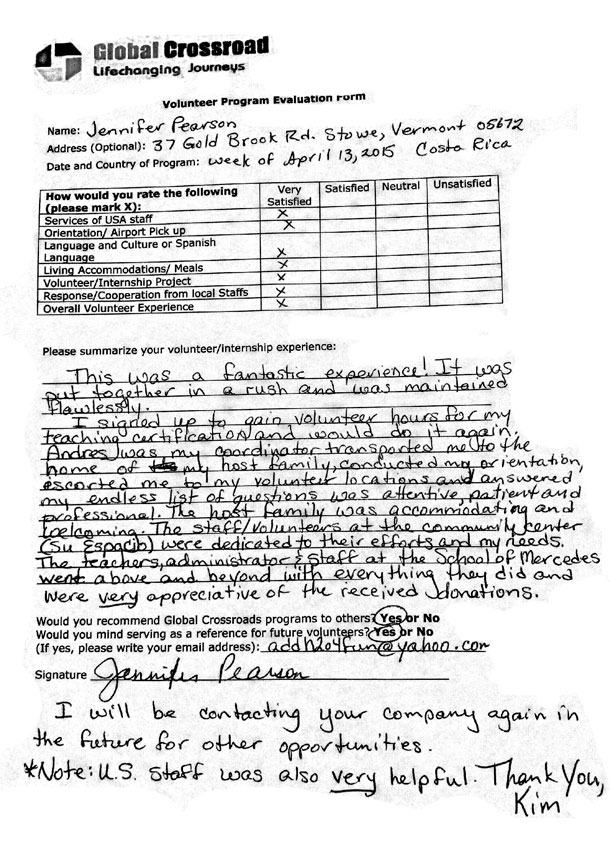 Global Crossroad
Lifechanging Journeys
Volunteer Program Evaluation Form
Name: Jennifer Pearson
Address (Optional): 37 Gold Brook Rd. Stowe, Vermont 05672
Date and Country of Program: week of April 13, 2015 Costa Rica
How would you rate the following (please mark X): Very Satisfied Satisfied Neutral Unsatisfied
Services of USA staff X
Orientation/ Airport Pick up X
Language and Culture or Spanish Language X
Living Accommodations/ Meals X
Volunteer/Internship Project X
Response/Cooperation from local Staffs X
Overall Volunteer Experience X
Please summarize your volunteer/internship experience:
This was a fantastic experience! It was
put together in a rush and was maintained
flawlessly.
I signed up to gain volunteer hours for my
teaching certification and would do it again.
Andres was my coordinator transported me to the
home of my host family, conducted my orientation,
escorted me to my volunteer locations and answered
my endless list of questions was attentive, patient and
professional. The host family was accommodating and
welcoming. The staff/volunteers at the community center
(Su Espacio) were dedicated to their efforts and my needs.
The teachers, administrator & staff at the School of Mercedes
went above and beyond with everything they did and
were very appreciative of the received donations.
Would you recommend Global Crossroads programs to others? Yes or No
Would you mind serving as a reference for future volunteers? Yes or No
(If yes, please write your email address): addh2o4fun@yahoo.com
Signature Jennifer Pearson
I will be contacting your company again in
the future for other opportunities.
*Note: U.S. Staff was also very helpful. Thank You,
Kim